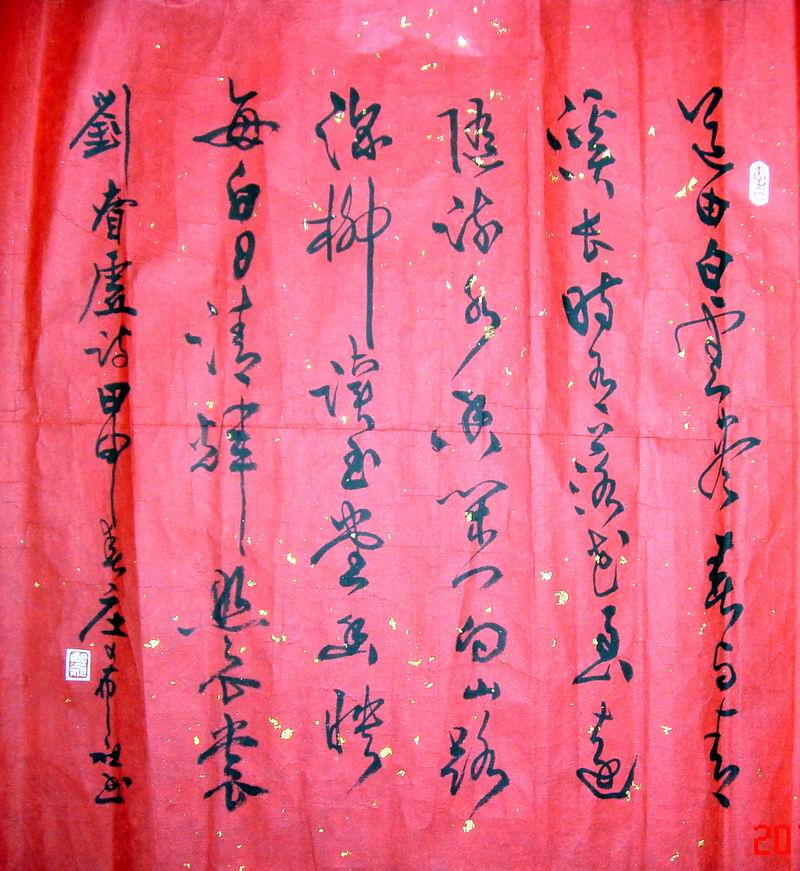 道由白雲盡春与青
溪長時有落花至遠
隨流水香閑門向山路
深柳讀書堂幽映
每白日清輝照衣裳
劉眘虛詩甲申春書
20